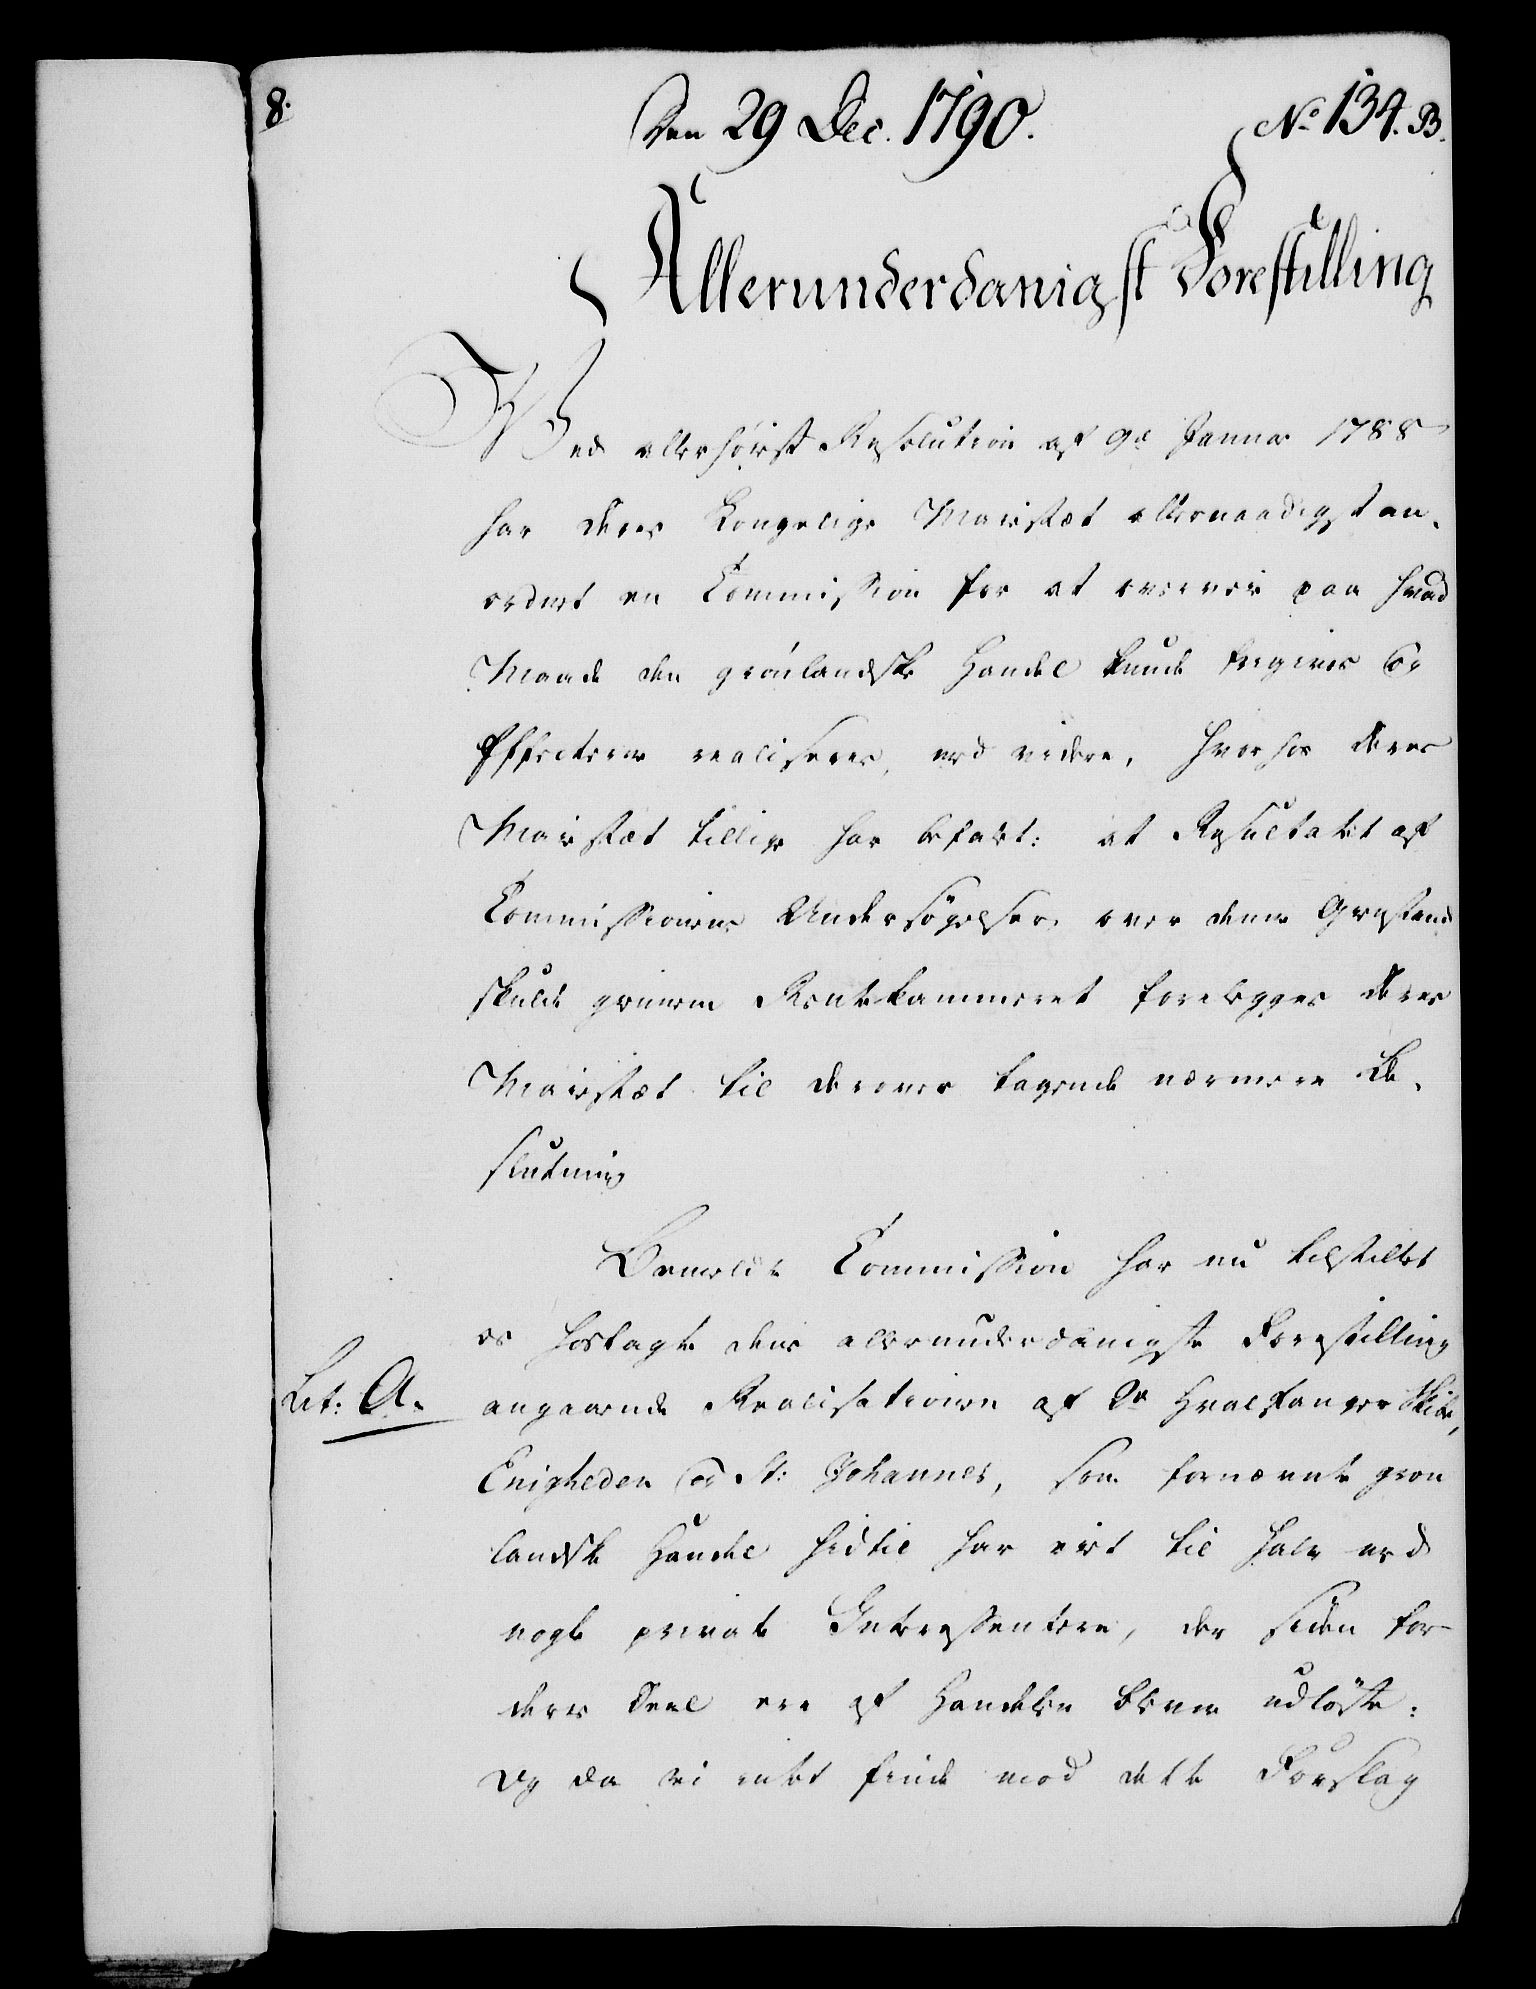 8.
Den 29 Dec. 1790.
No 134. B.
Allerunderdanigst Forestilling
Ved allerhøiest Resolution af 9de Januar 1788
har Deres Kongelige Maiestæt allernaadigst an-
ordnet en Commission for at overveie paa hvad
Maade den grønlandske Handel kunde frigives og
Effecterne realiseres, med videre, hvorhos Deres
Maiestæt tillige har befalet: at Resultatet af
Commissionens Undersøgelser over denne Gienstand
skulde giennem Rentekammeret forelægges Deres
Maiestæt til derover tagende nærmere Be-
slutning
Bemeldte Commission har nu tilstillet
os hostagte dens allerunderdanigste Forestilling
Lit: A.
angaaende Realisationen af de Hvalfanger Skibe,
Enigheden og St: Johannes, som fornævnte grøn
landske Handel hidtil har eiet til halv med
nogle private Interessentere, der siden for
deres Deel ere af Handelen blevne udløste:
Og da vi intet finde mod dette Forslag